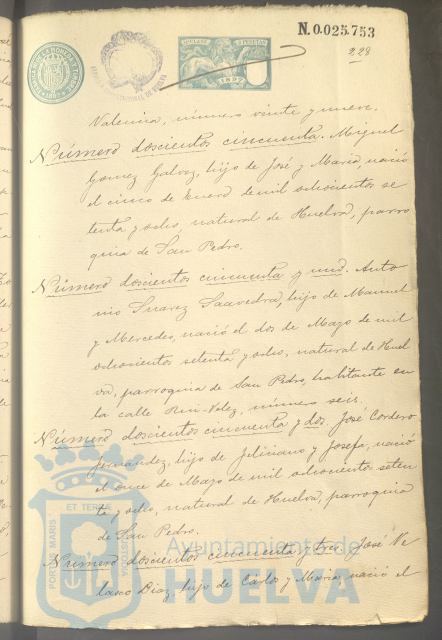 N.0.025.753
228
Valencia, número veinte y nueve.
Número doscientos cincuenta. Miguel
Gomez Galvez, hijo de José y Maria, nació
el cinco de Enero de mil ochocientos se
tenta y ocho, natural de Huelva, parro
quia de San Pedro.
Número doscientos cincuenta y uno. Anto
nio Suarez Saavedra, hijo de Manuel
y Mercedes, nació el dos de Mayo de mil
ochocientos setenta y ocho, natural de Huel
va, parroquia de San Pedro, habitante en
la calle número seis.
Número doscientos cincuenta y dos. José Cordero
Fernandez, hijo de Feliciano y Josefa, nació
el once de Mayo de mil ochocientos seten
ta y ocho, natural de Huelva, parroquia
de San Pedro.
Número doscientos cincuenta y tres. José Ve
lasco Diaz, hijo de Carlos y Maria, nació el
PORTUS MARIS ET TERRAE CUSTODIA
Ayuntamiento de
HUELVA